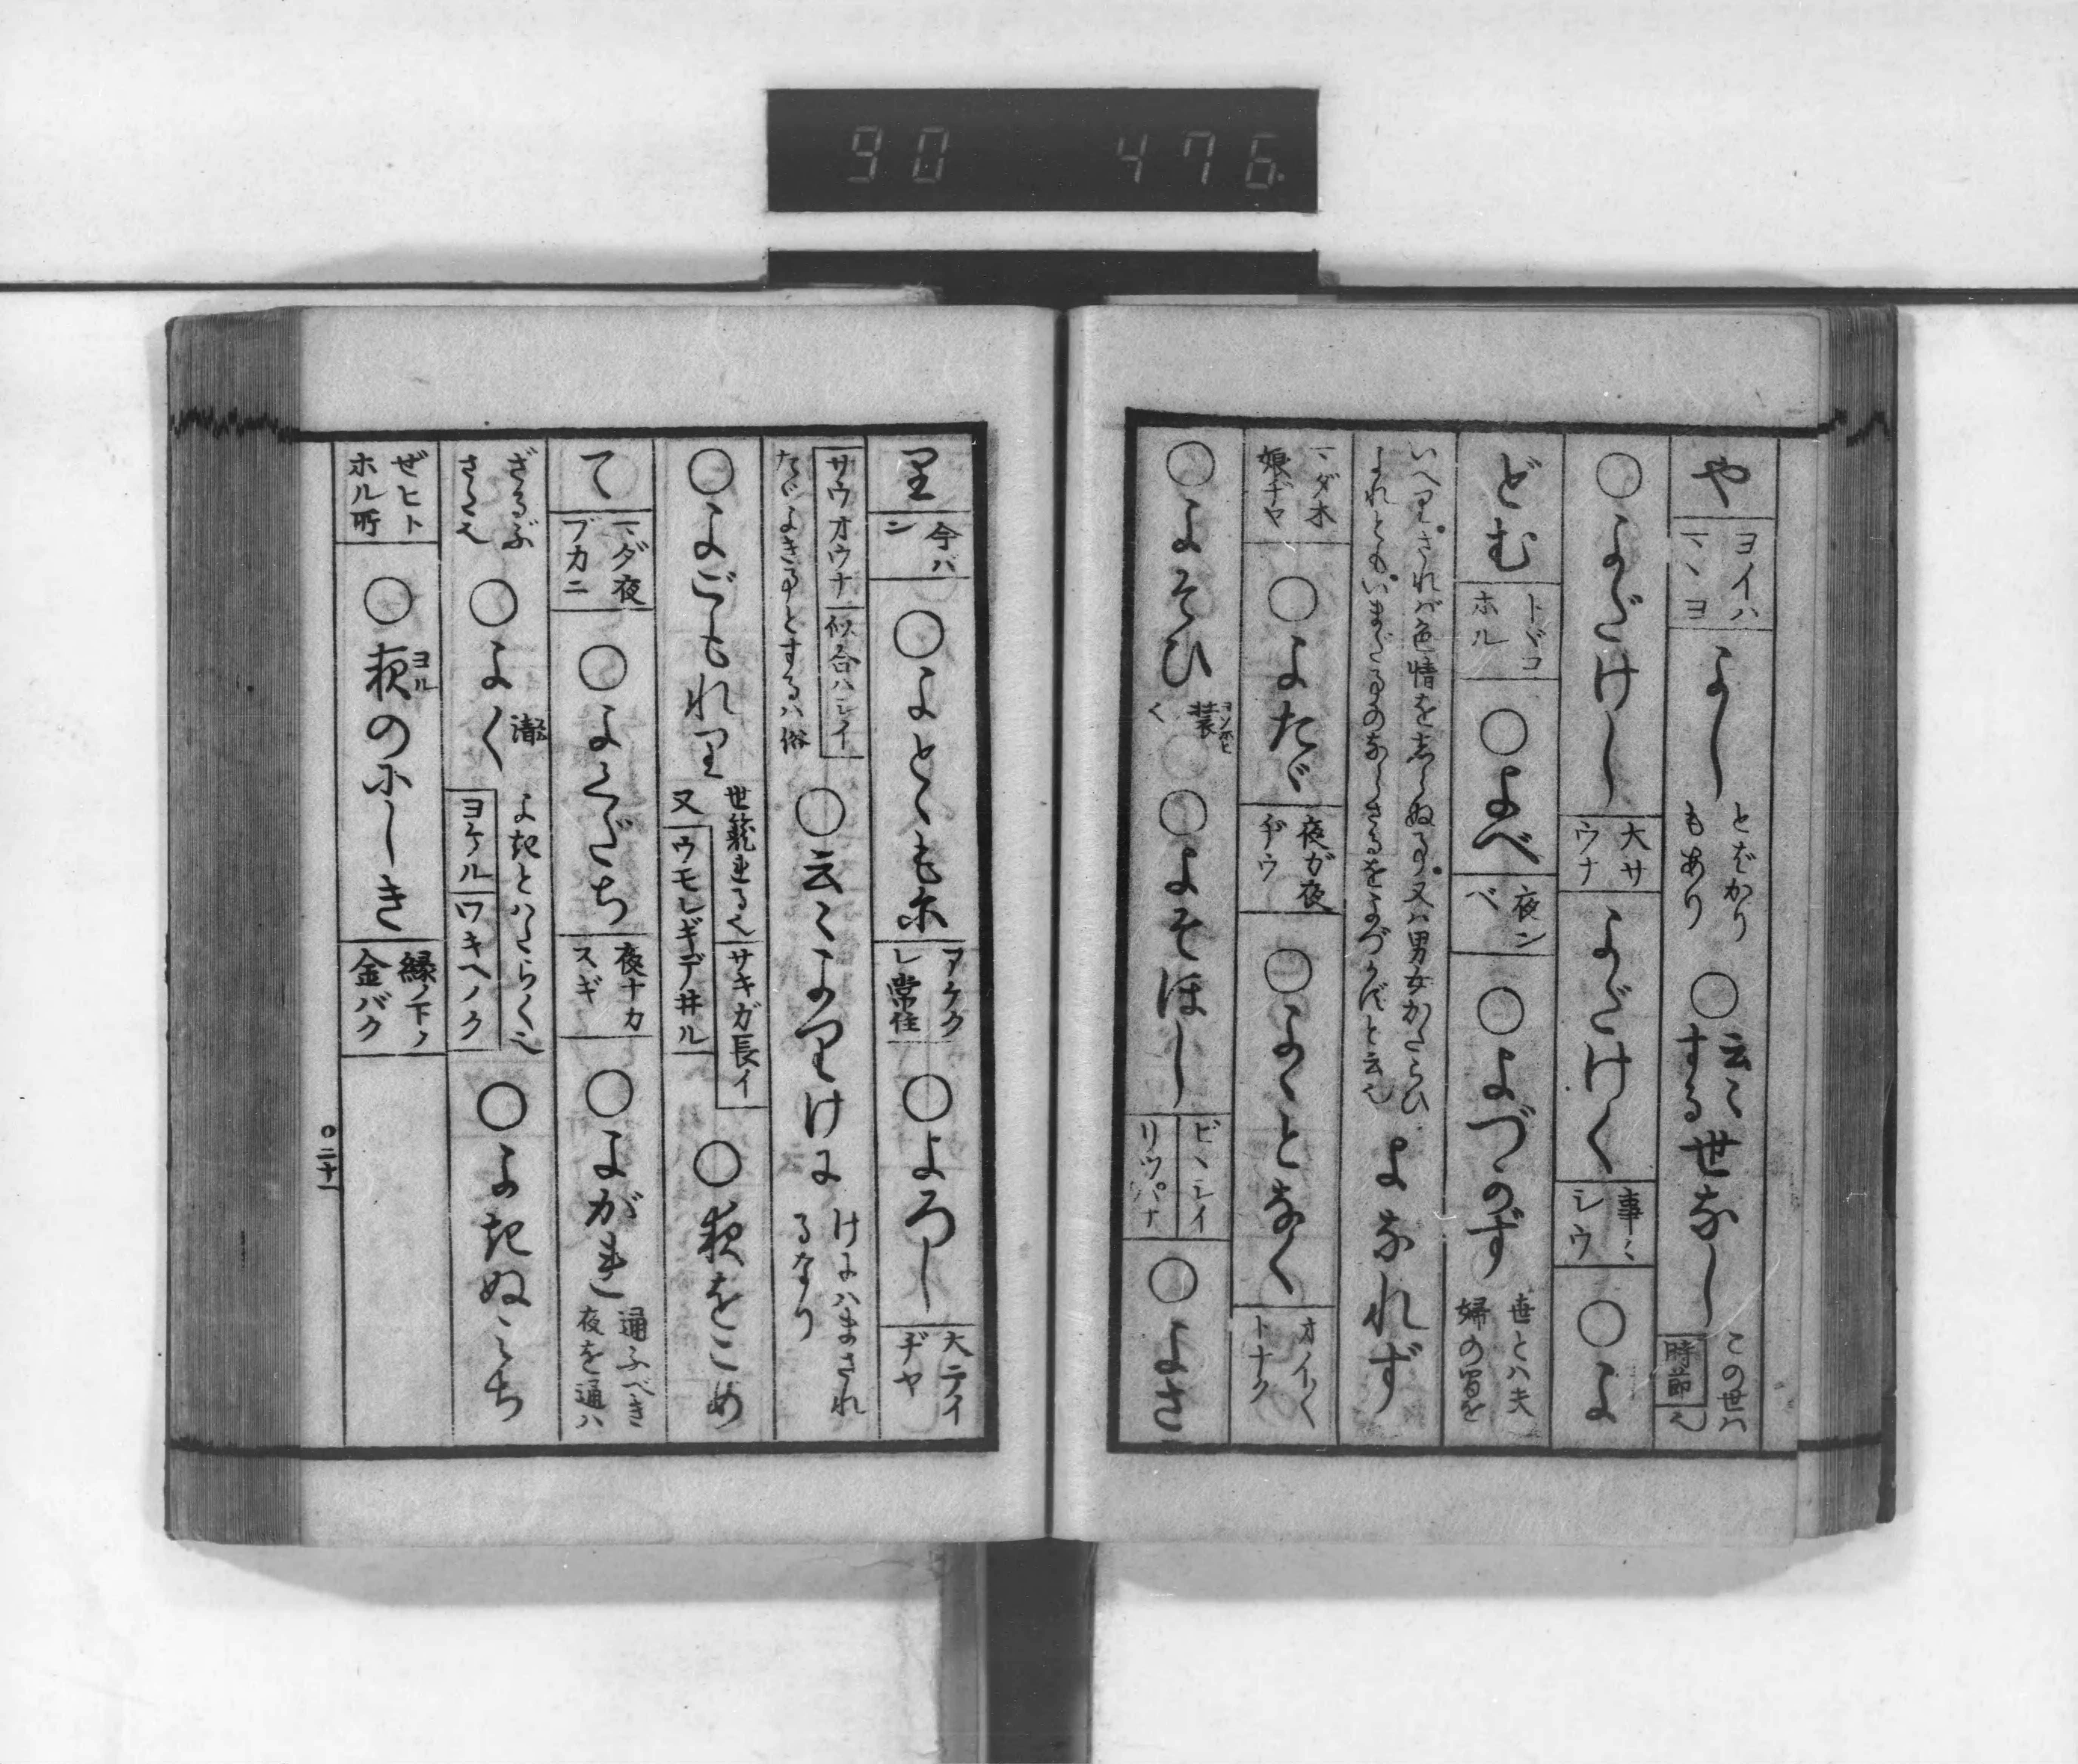 90 476
や
ヨイハ
マヽヨ
よし
とばかり
もあり
○云々
する世なし
この世ハ
時節也
○よだけし
大サ
ウナ
よだけく
事〻
シウ
○よ
どむ
トヾコ
ホル
○よべ
夜ン
ベ
○よづかず
世とハ夫
婦の间を
いへり。されば色情をしらぬ事。又ハ男女かたらひ
よれども。いまださるのなしさるをよづかずと云也
よなれず
マダ木
娘ヂヤ
○よたゞ
夜ガ夜
ヂウ
○よゝとなく
オイ〳〵
トナク
○よそひ
装
ヨソホヒ
く
○よそほし
ビヽシイ
リウパナ
○よさ
り
今バ
ン
○よとゝもに
アケク
レ常住
○よろし
大テイ
ヂヤ
サウオウナ
似合ハシイ
たゞよき事とするハ俗
○云々よりけに
けにハまされ
るなり
○よごもれり
世籠れる也
サキガ長イ
又
ウモレギデ井ル
○夜をこめ
て
マダ夜
ブカニ
○よくだち
夜ナカ
スギ
○よがれ
通ふべき
夜を通ハ
ざるぶ
さた也
○よく
よきとハたらく也
ヨケル
ワキヘノク
○よきぬみち
ぜヒト
ホル所
○夜のにしき
ヨル
縁ノ下ノ
金バク
○二十一